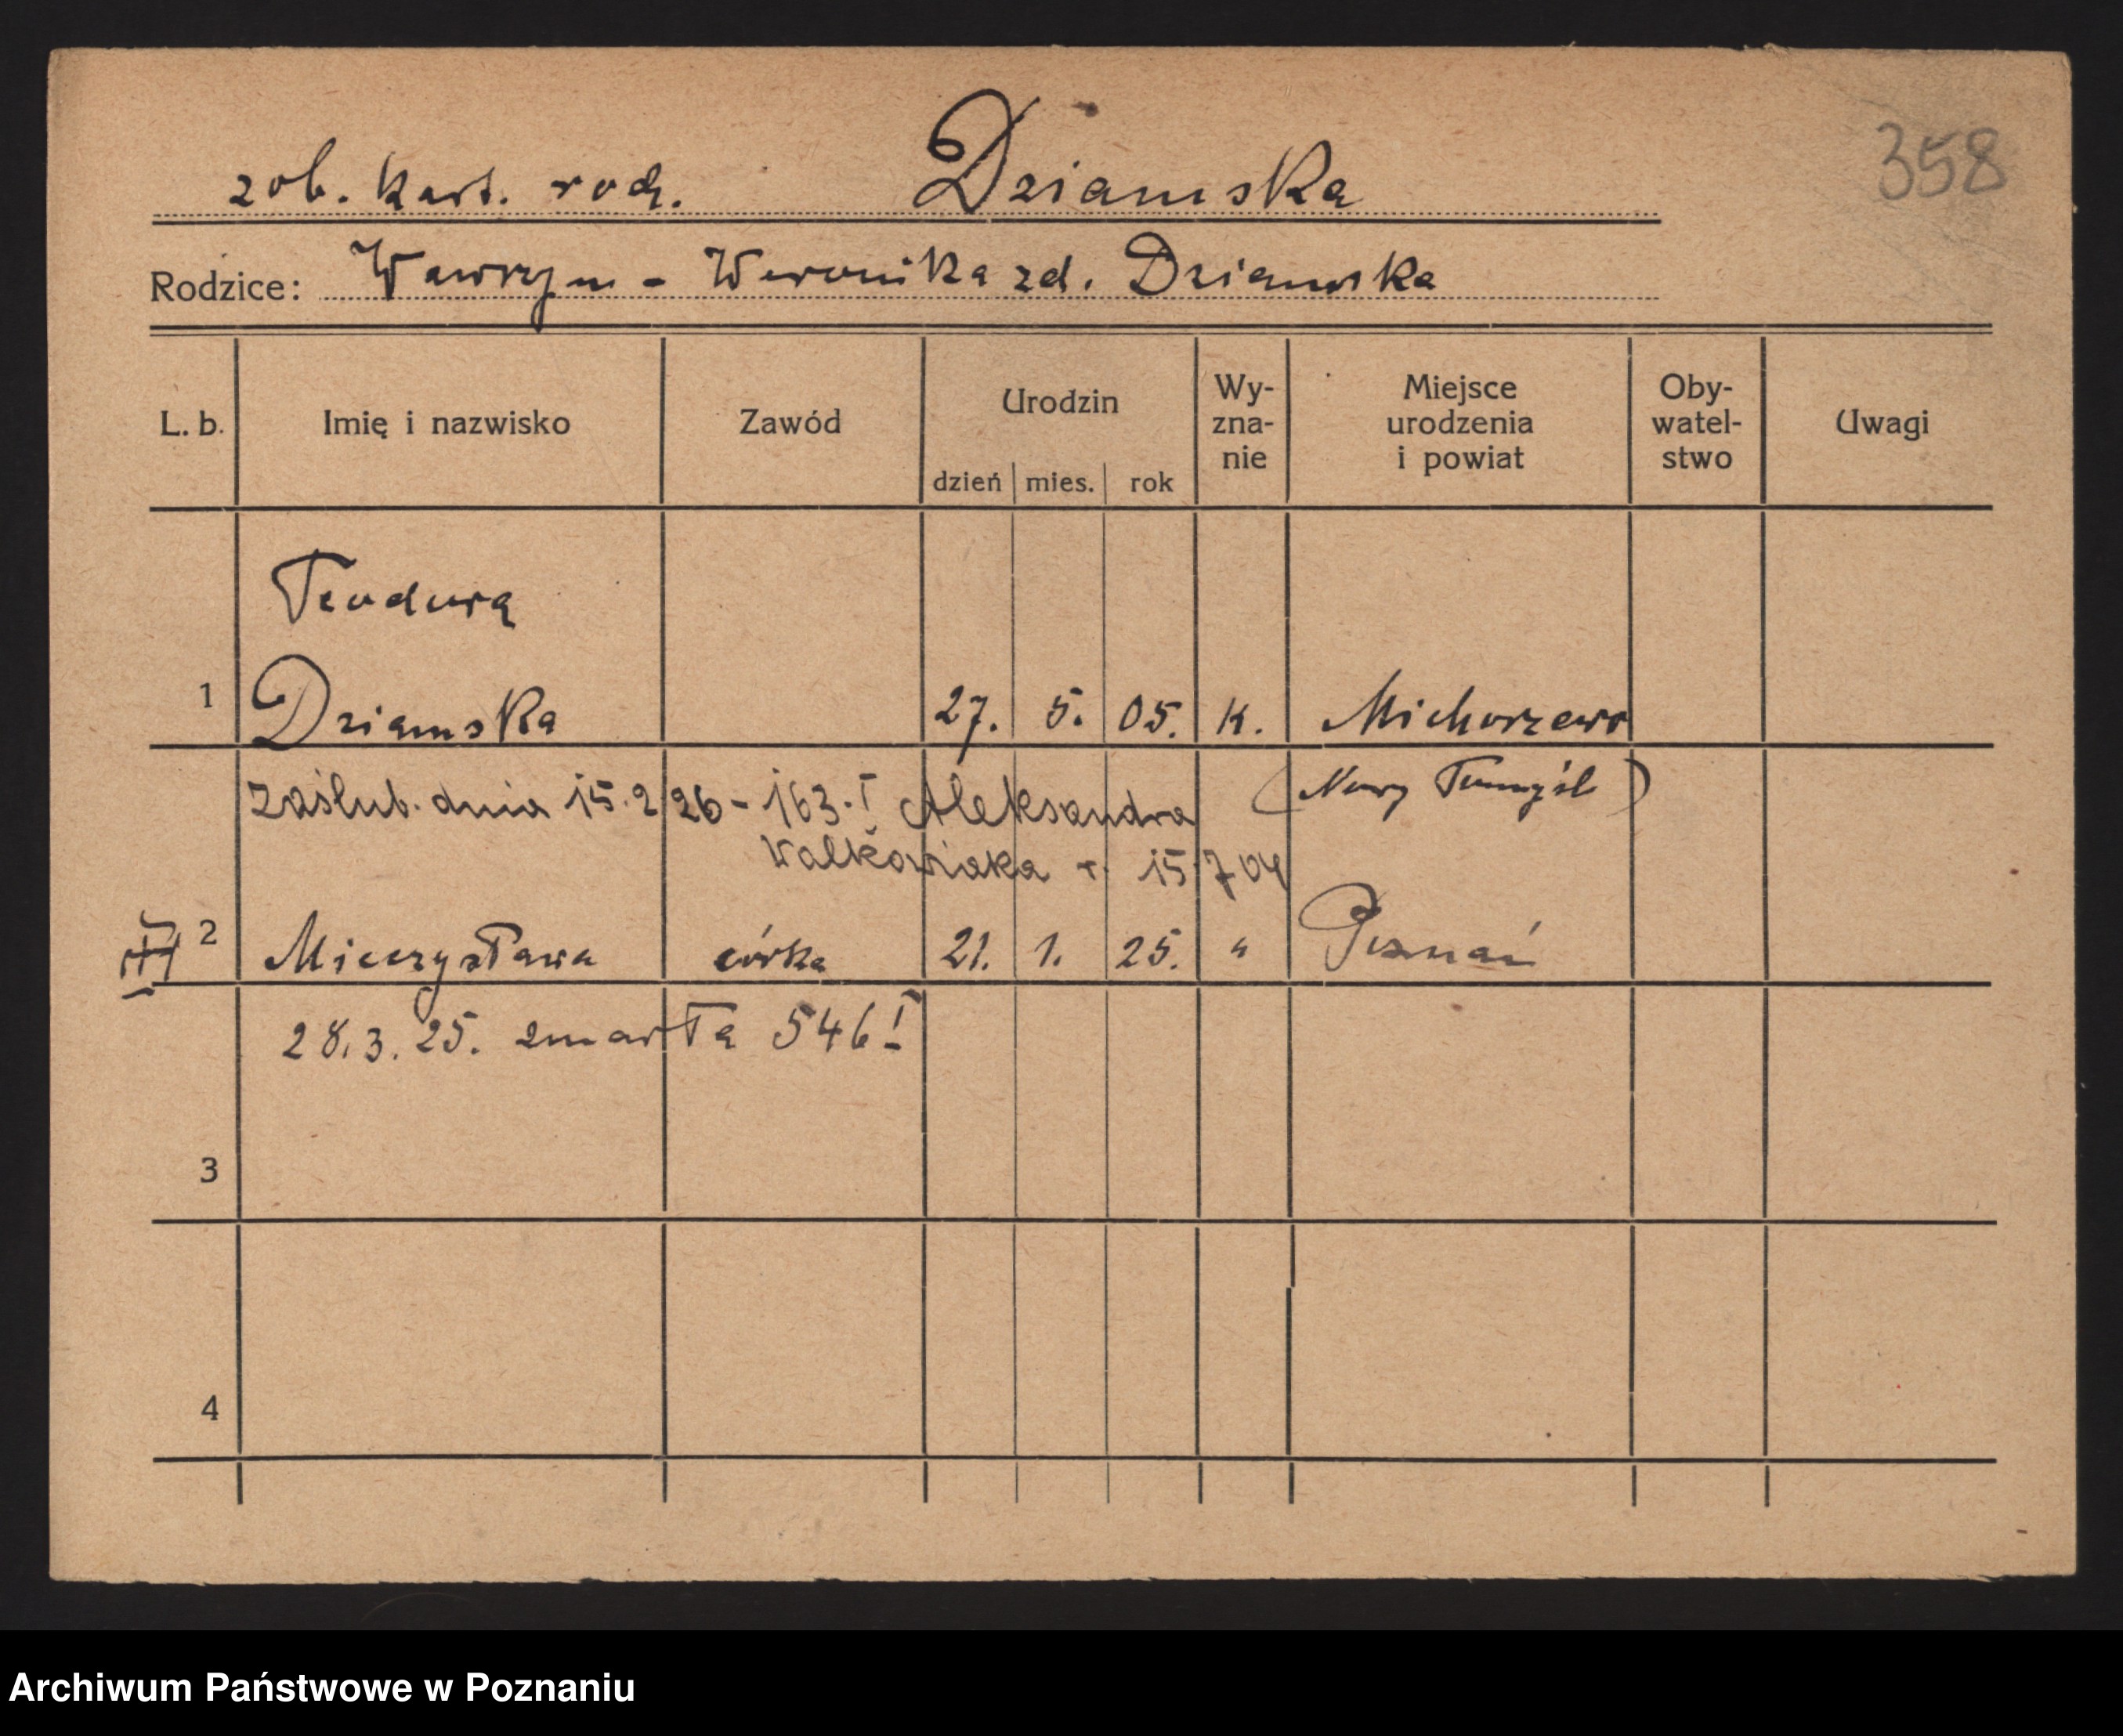 358
zob. kart. rodz. Dziamska
Rodzice: Wawrzyn - Weronika zd. Dziamska
L. b. Imię i nazwisko Zawód Urodzin dzień mies. rok Wy-znanie Miejsce urodzenia i powiat Oby-watel-stwo Uwagi
Teodora
1 Dziamska 27. 5. 05. K. Michorzewo
zaślub. dnia 15.2 26 - 163.I Aleksandra (Nowy Tomyśl)
Walkowiaka r. 15 7 04
2 Mieczysława córka 21. 1. 25. " Poznań
28.3.25. zmarła 546 I
3
4
Archiwum Państwowe w Poznaniu